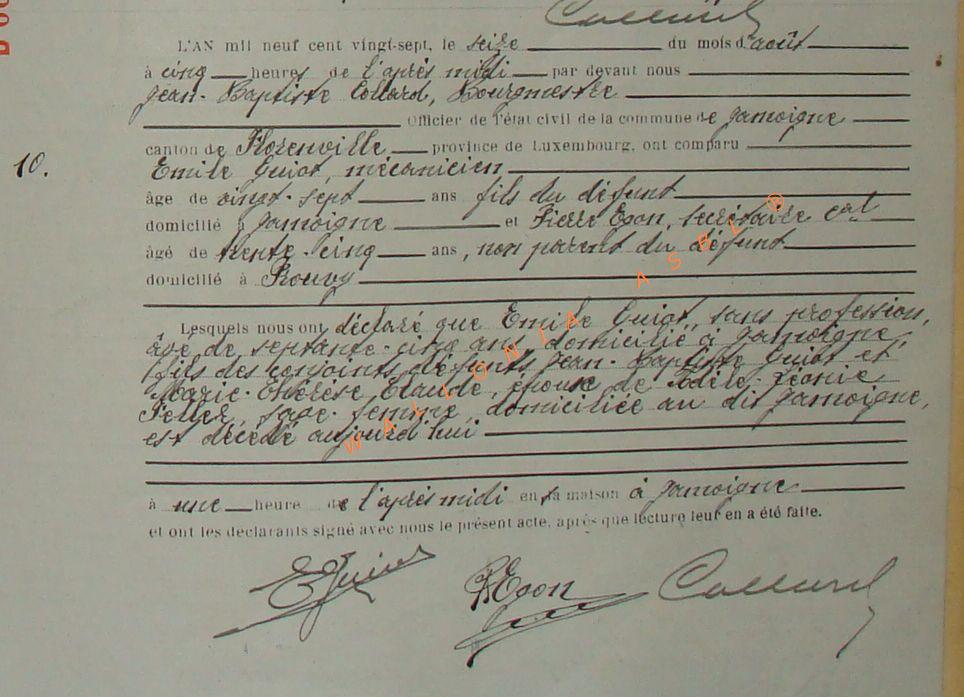 Collard
L'AN mil neuf cent vingt-sept, le seize du mois d'août
à cinq heures de l'après midi par devant nous
Jean-Baptiste Collard, Bourgmestre
Officier de l'état civil de la commune de Jamoigne
canton de Florenville province de Luxembourg, ont comparu
10.
Emile Guiot, mécanicien
âge de vingt-sept ans fils du défunt
domicilié à Jamoigne et Pierre Egon, secrétaire cal
âgé de trente-cinq ans, non parent du défunt
domicilié à Rouvy
Lesquels nous ont déclaré que Emile Guiot, sans profession,
âgé de septante-cinq ans domicilié à Jamoigne,
fils des conjoints défunts Jean-Baptiste Guiot et
Marie-Thérèse Claude, époux de Adèle-Léonie
Feller, sage-femme, domiciliée au dit Jamoigne,
est décédé aujourd'hui
à une heure de l'après midi en sa maison à Jamoigne
et ont les déclarants signé avec nous le présent acte, après que lecture leur en a été faite.
EGuiot PEgon Collard
WALLONIA ASBL ®